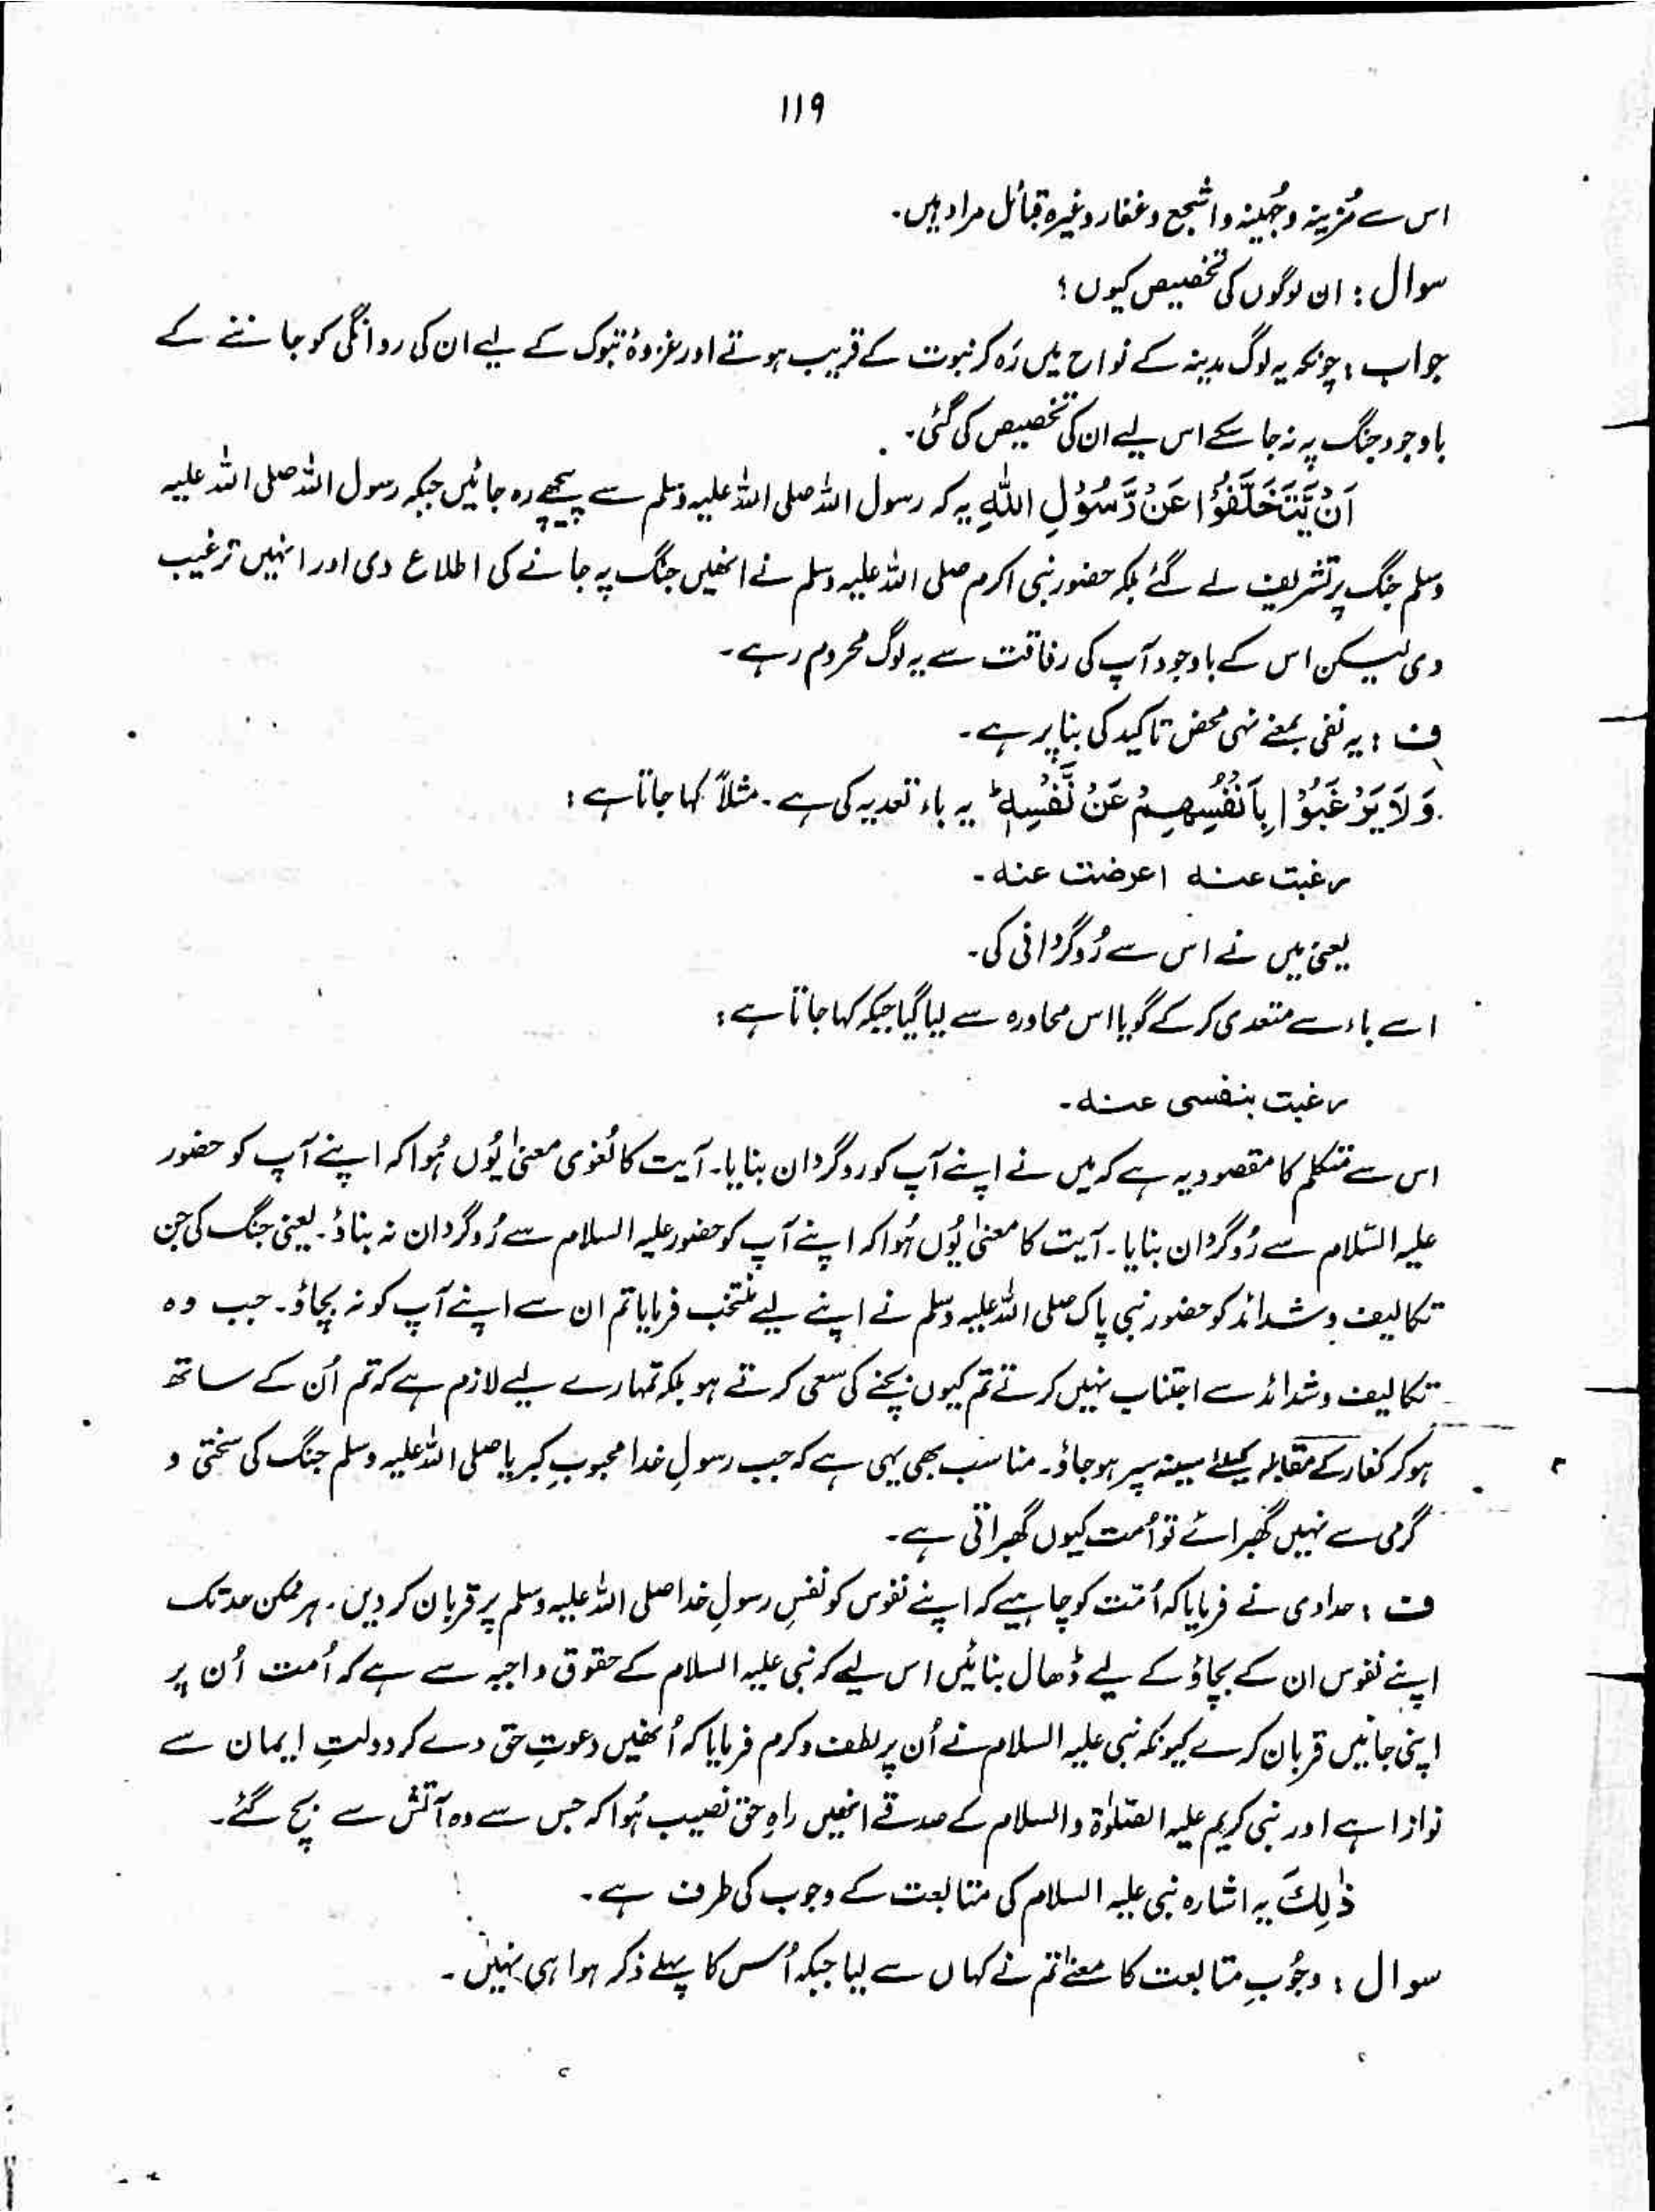 ۱۱۹
اس سے مُزینہ و جُہینہ و اشجع و غفار وغیرہ قبائل مراد ہیں۔
سوال : ان لوگوں کی تخصیص کیوں ؟
جواب : چونکہ یہ لوگ مدینہ کے نواح میں رَہ کر نبوت کے قریب ہوتے اور غزوۂ تبوک کے لیے ان کی روانگی کو جاننے کے
باوجود جنگ پہ نہ جا سکے اس لیے ان کی تخصیص کی گئی۔
اَنْ یَّتَخَلَّفُوْا عَنْ رَّسُوْلِ اللّٰہِ یہ کہ رسول اللہ صلی اللہ علیہ وسلم سے پیچھے رہ جائیں جبکہ رسول اللہ صلی اللہ علیہ
وسلم جنگ پر تشریف لے گئے بلکہ حضور نبی اکرم صلی اللہ علیہ وسلم نے انھیں جنگ پہ جانے کی اطلاع دی اور انہیں ترغیب
دی لیکن اس کے باوجود آپ کی رفاقت سے یہ لوگ محروم رہے۔
ف : یہ نفی بمعنے نہی محض تاکید کی بنا پر ہے۔
وَلَا یَرْغَبُوْا بِاَنْفُسِہِمْ عَنْ نَّفْسِہٖ ط یہ باء تعدیہ کی ہے۔ مثلاً کہا جاتا ہے :
رغبت عنہ اعرضت عنہ۔
یعنی میں نے اس سے رُوگردانی کی۔
اسے باء سے متعدی کر کے گویا اس محاورہ سے لیا گیا جبکہ کہا جاتا ہے :
رغبت بنفسی عنہ۔
اس سے متکلم کا مقصود یہ ہے کہ میں نے اپنے آپ کو روگردان بنایا۔ آیت کا لُغوی معنیٰ یُوں ہُوا کہ اپنے آپ کو حضور
علیہ السّلام سے رُوگردان بنایا۔ آیت کا معنیٰ یُوں ہُوا کہ اپنے آپ کو حضور علیہ السلام سے رُوگردان نہ بناؤ۔ یعنی جنگ کی جن
تکالیف و شدائد کو حضور نبی پاک صلی اللہ علیہ وسلم نے اپنے لیے منتخب فرمایا تم ان سے اپنے آپ کو نہ بچاؤ۔ جب وہ
تکالیف و شدائد سے اجتناب نہیں کرتے تم کیوں بچنے کی سعی کرتے ہو بلکہ تمہارے لیے لازم ہے کہ تم اُن کے ساتھ
ہو کر کفار کے مقابلہ کیلئے سینہ سپر ہو جاؤ۔ مناسب بھی یہی ہے کہ جب رسولِ خدا محبوبِ کبریا صلی اللہ علیہ وسلم جنگ کی سختی و
گرمی سے نہیں گھبرائے تو اُمت کیوں گھبراتی ہے۔
ف : حدادی نے فرمایا کہ اُمّت کو چاہیے کہ اپنے نفوس کو نفسِ رسولِ خدا صلی اللہ علیہ وسلم پر قربان کر دیں۔ ہر ممکن حد تک
اپنے نفوس ان کے بچاؤ کے لیے ڈھال بنائیں اس لیے کہ نبی علیہ السلام کے حقوق واجبہ سے ہے کہ اُمت اُن پر
اپنی جانیں قربان کرے کیونکہ نبی علیہ السلام نے اُن پر لطف و کرم فرمایا کہ اُنھیں دعوتِ حق دے کر دولتِ ایمان سے
نوازا ہے اور نبی کریم علیہ الصّلوٰۃ والسلام کے صدقے انھیں راہِ حق نصیب ہُوا کہ جس سے وہ آتش سے بچ گئے۔
ذٰلِكَ یہ اشارہ نبی علیہ السلام کی متابعت کے وجوب کی طرف ہے۔
سوال : وجُوبِ متابعت کا معنےٰ تم نے کہاں سے لیا جبکہ اُس کا پہلے ذکر ہوا ہی نہیں۔